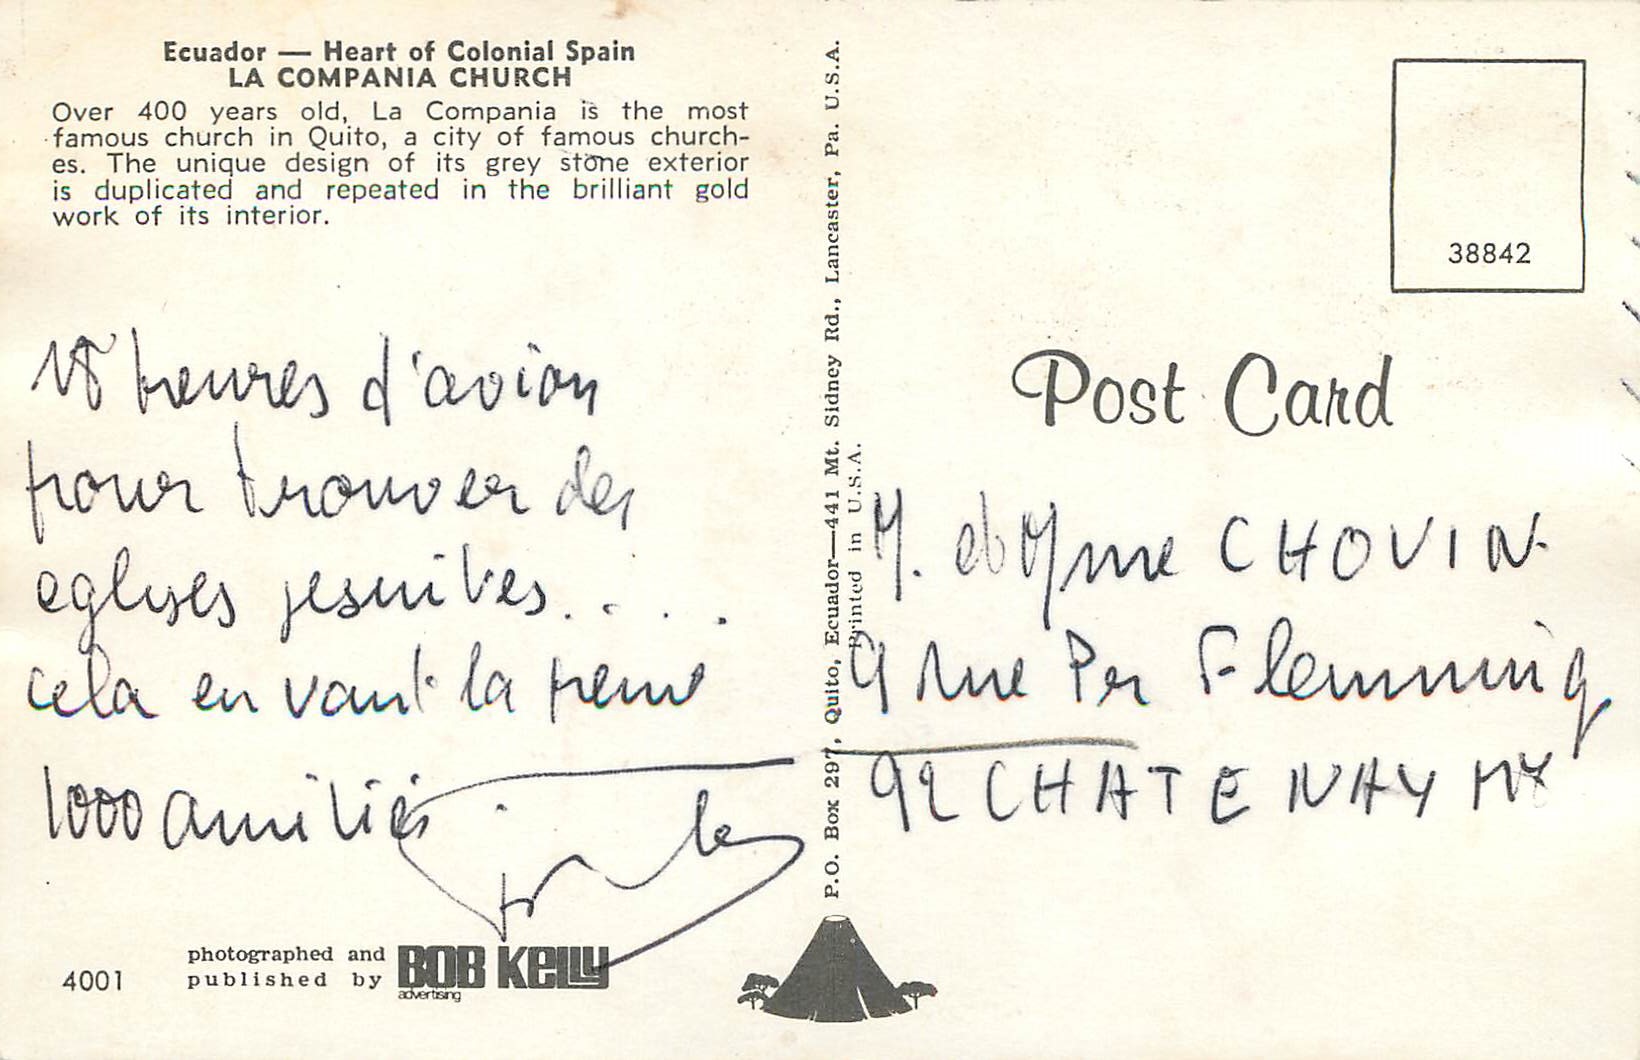 Ecuador — Heart of Colonial Spain
LA COMPANIA CHURCH
Over 400 years old, La Compania is the most
famous church in Quito, a city of famous church-
es. The unique design of its grey stone exterior
is duplicated and repeated in the brilliant gold
work of its interior.
18 heures d'avion
pour trouver des
eglises jesuites. . . .
cela en vaut la peine
1000 amitiés
photographed and
published by BOB KELLY
advertising
4001
P.O. Box 297, Quito, Ecuador—441 Mt. Sidney Rd., Lancaster, Pa. U.S.A.
Printed in U.S.A.
38842
Post Card
M. et Mme CHOVIN
9 rue Flemming
92 CHATENAY MX